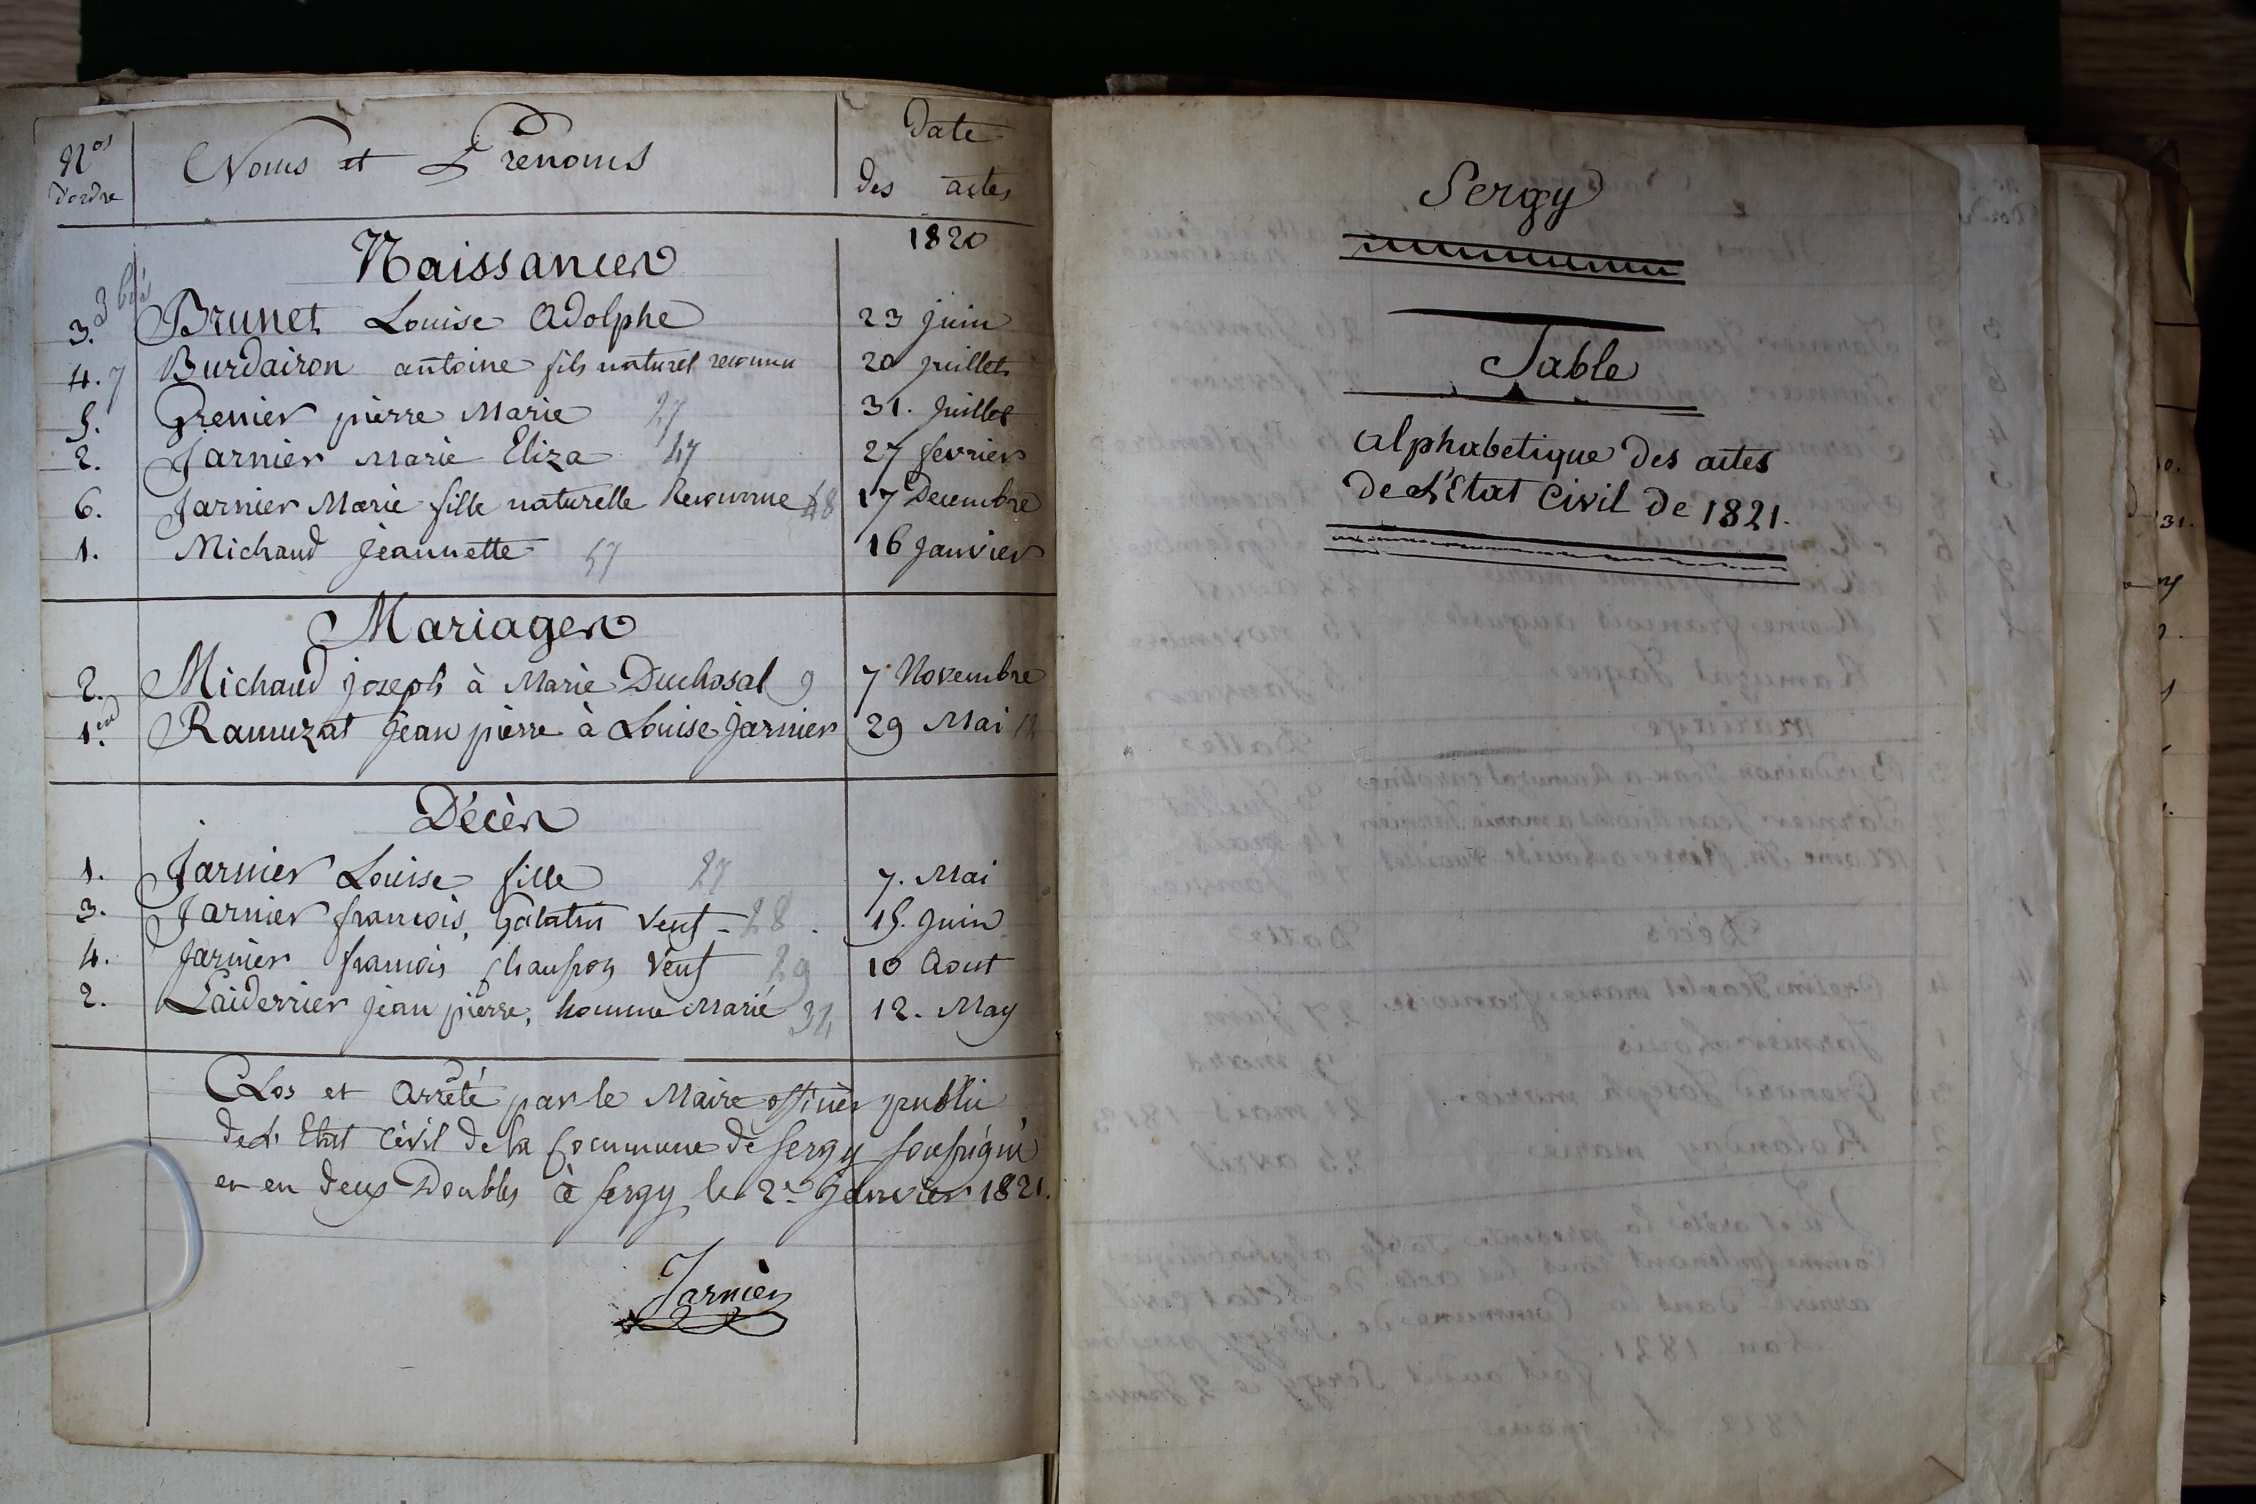 Nos d'ordre
Noms et Prenoms
Date des actes
1820
Naissances
3. 3 bis Brunet Louise Adolphe 23 Juin
4. 7 Burdairon antoine fils naturel reconnu 20 Juillet
5. Grenier pierre Marie 27 31. Juillet
2. Jarnier Marie Eliza 47 27 fevrier
6. Jarnier Marie fille naturelle Reconnue 48 17 Decembre
1. Michaud Jeannette 57 16 Janvier
Mariages
2. Michaud joseph à Marie Duchosal 9 7 Novembre
1er Ramuzat Jean pierre à Louise Jarnier 29 Mai 12
Décès
1. Jarnier Louise fille 27 7. Mai
3. Jarnier francois, Galatin Veuf - 28. 15. Juin
4. Jarnier francois Veuf 29 10 Aout
2. Laiderrier Jean pierre, homme Marié 34 12. May
Clos et Arrêté par le Maire officier public
de L'Etat Civil de la Commune de Sergy soussigné
en deux Doubles à Sergy le 2e Janvier 1821.
Jarnier
Sergy
Table
alphabetique des actes
de L'Etat Civil de 1821.